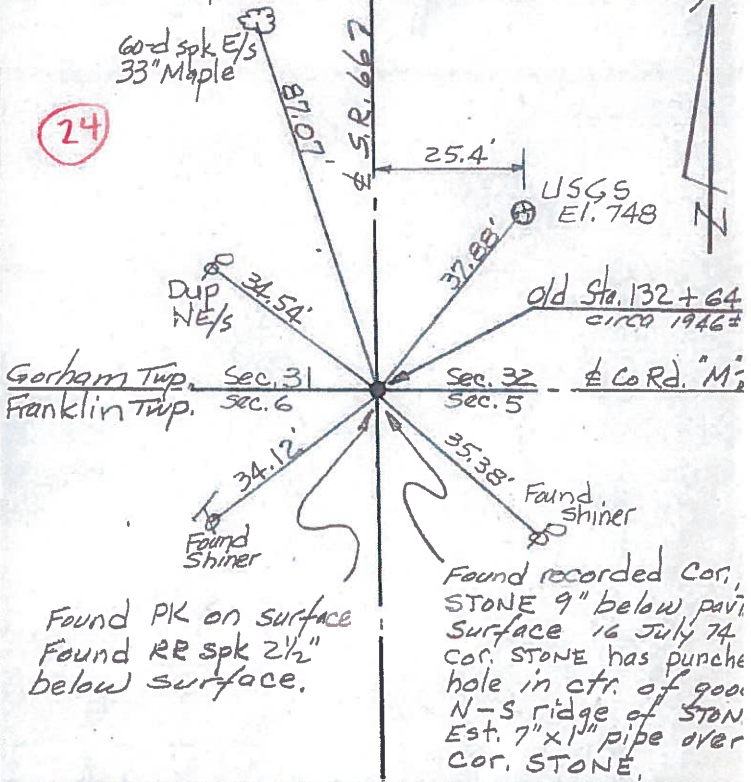 60-d spk E/s
33" Maple
24
87.07'
℄ S.R. 66
25.4'
USGS
El. 748
N
37.88'
Dup
NE/s
34.54'
old Sta. 132 + 64
circa 1946±
Gorham Twp. Sec. 31 Sec. 32 ℄ Co Rd. "M"
Franklin Twp. Sec. 6 Sec. 5
34.12'
35.38'
Found
Shiner
Found
shiner
Found PK on surface
Found RR spk 2½"
below surface.
Found recorded Cor.,
STONE 9" below
Surface 16 July 74
Cor. STONE has punche
hole in ctr. of goo
N-S ridge of STON
Est. 7"x1" pipe over
Cor. STONE.